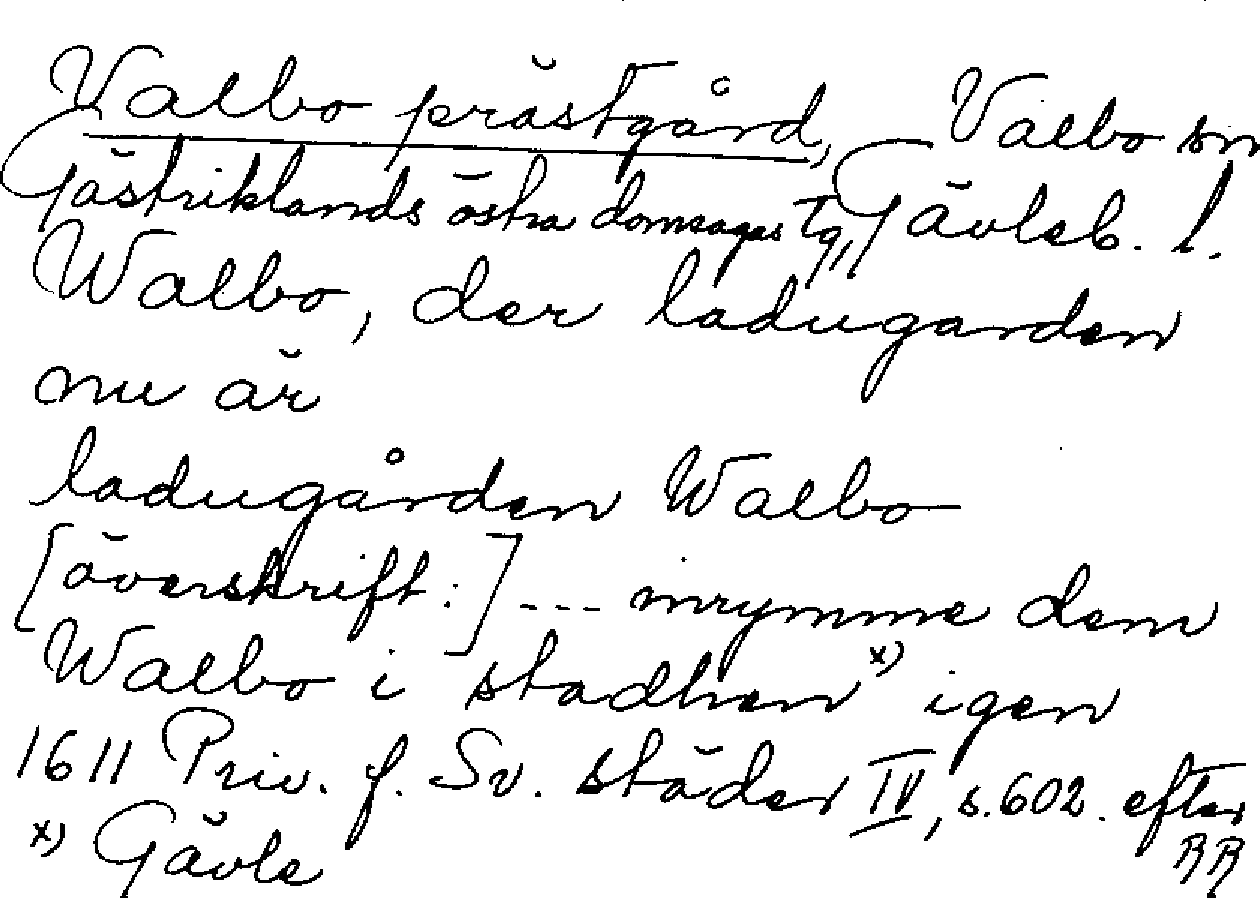 Valbo prästgård, Valbo sn
Gästriklands östra domsagas tg, Gävleb. l.
Walbo, der ladugarden
nu är
ladugården Walbo
[överskrift:] --- inrymme dem
Walbo i stadhen x) igen
1611 Priv. f. Sv. städer IV, s.602. efter
x) Gävle RR